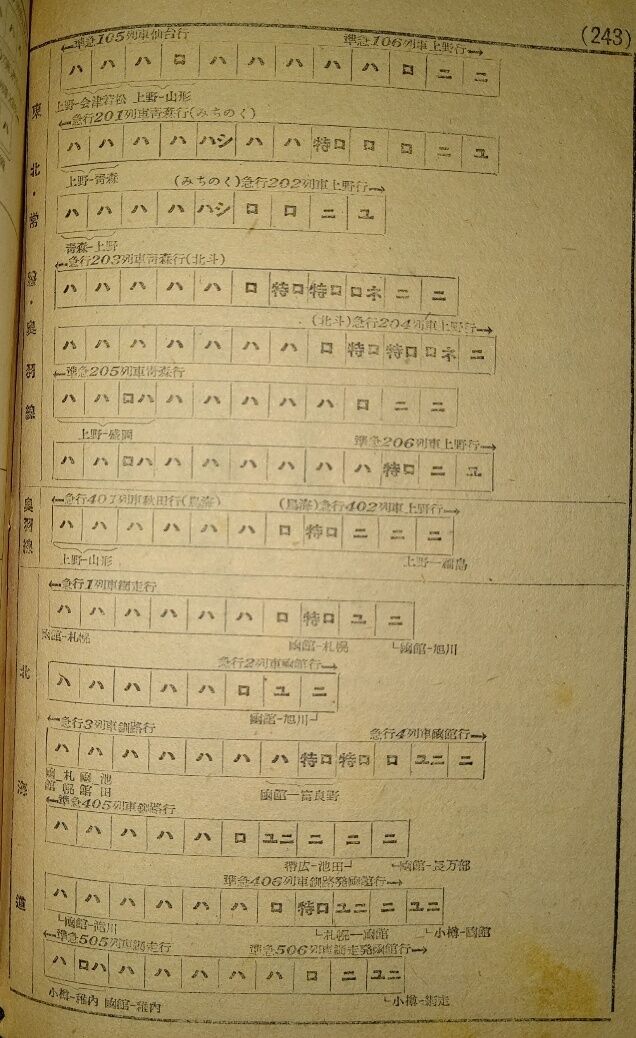 (243)
東北・常磐・奥羽線
←準急105列車仙台行 準急106列車上野行→
ハ ハ ハ ロ ハ ハ ハ ハ ハ ロ ニ ニ
上野-会津若松 上野-山形
←急行201列車青森行(みちのく)
ハ ハ ハ ハ ハシ ハ ハ 特ロ ロ ロ ニ ユ
上野-青森 (みちのく)急行202列車上野行→
ハ ハ ハ ハ ハシ ロ ロ ニ ユ
青森-上野
←急行203列車青森行(北斗)
ハ ハ ハ ハ ハ ロ 特ロ 特ロ ロネ ニ ニ
(北斗)急行204列車上野行→
ハ ハ ハ ハ ハ ハ ハ ロ 特ロ 特ロ ロネ ニ
←準急205列車青森行
ハ ハ ロハ ハ ハ ハ ハ ハ ロ ニ ニ
上野-盛岡 準急206列車上野行→
ハ ハ ロハ ハ ハ ハ ハ ハ ハ 特ロ ニ ユ
奥羽線
←急行401列車秋田行(鳥海) (鳥海)急行402列車上野行→
ハ ハ ハ ハ ハ ハ ロ 特ロ ニ ニ ニ
上野-山形 上野-福島
北海道
←急行1列車網走行
ハ ハ ハ ハ ハ ハ ロ 特ロ ユ ニ
函館-札幌 函館-札幌 └函館-旭川
急行2列車函館行→
ハ ハ ハ ハ ハ ロ ユ ニ
函館-旭川┘
←急行3列車釧路行 急行4列車函館行→
ハ ハ ハ ハ ハ ハ ハ 特ロ 特ロ ロ ユニ ニ
函館-札幌 函館-池田 函館-富良野
←準急405列車釧路行
ハ ハ ハ ハ ハ ロ ユニ ニ ニ ニ
帯広-池田┘ └函館-長万部
準急406列車釧路発函館行→
ハ ハ ハ ハ ハ ハ ロ 特ロ ユニ ニ ユニ
└函館-滝川 └札幌-函館 └小樽-函館
←準急505列車網走行 準急506列車網走発函館行→
ハ ロハ ハ ハ ハ ハ ハ ロ ニ ユニ
小樽-稚内 函館-稚内 └小樽-網走